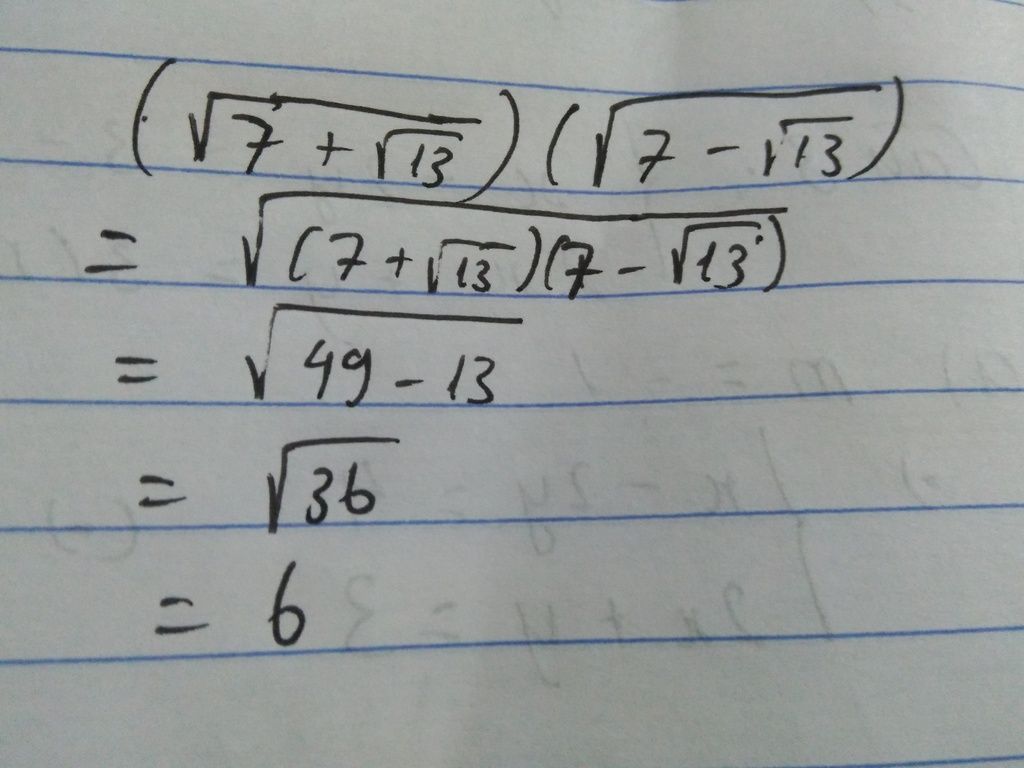 (√(7 + √13)) (√(7 - √13))
= √((7 + √13)(7 - √13))
= √(49 - 13)
= √36
= 6